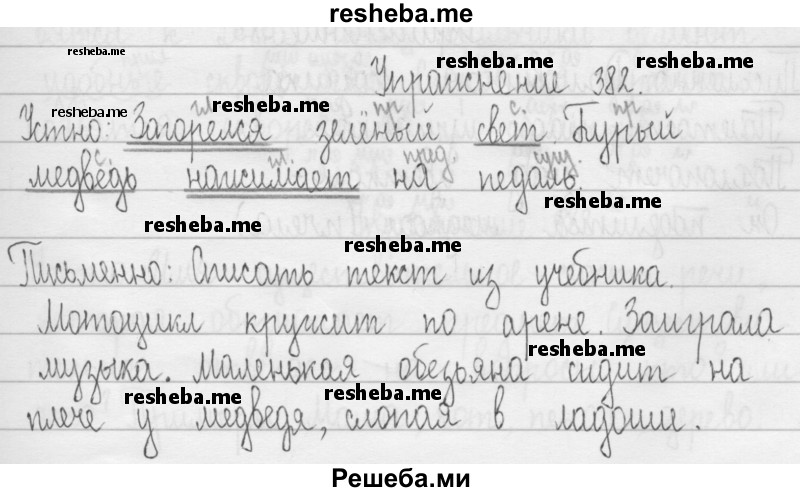 resheba.me
resheba.me
resheba.me
Упражнение 382.
resheba.me
resheba.me
resheba.me
гл. пр. с. пр.
Устно: Загорелся зелёный свет. Бурый
с. гл. пред. сущ.
медведь нажимает на педаль.
resheba.me
resheba.me
Письменно: Списать текст из учебника.
Мотоцикл кружит по арене. Заиграла
resheba.me
музыка. Маленькая обезьяна сидит на
resheba.me
resheba.me
resheba.me
плече у медведя, хлопая в ладоши.
Решеба.ми